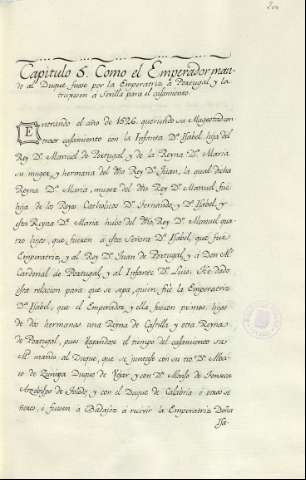 Capitulo 8. Como el Emperador man-
do al Duque fuese por la Emperatriz a Portugal y la
truxesen a Sevilla para el casamiento.
Entrando el año de 1526. queriendo su Magestad con-
traer casamiento con la Infanta Dª Isabel hija del
Rey Dn. Manuel de Portugal y de la Reyna Dª Maria
su muger, y hermana del Rey Dn. Juan, la qual dicha
Reyna Dª Maria, muger del Rey Dn Manuel fue
hija de los Reyes Catholicos Dn Fernando, y Dª Isabel, y
esta Reyna Dª Maria hubo del Rey Dn. Manuel qua-
tro hijos, que fueron a esta Señora Dª Isabel, que fue
Emperatriz, y al Rey Dn Juan de Portugal, y a Don
Cardenal de Portugal, y al Infante Dn Luis. He dado
esta relacion para que se sepa, quien fue la Emperatriz
Dª Isabel, que el Emperador, y ella fueron primos, hijos
de dos hermanas una Reyna de Castilla y otra Reyna
de Portugal, pues llegandose el tiempo del casamiento su
M. mando al Duque, que se juntase con su tio Dn Alva-
ro de Zuñiga Duque de Vejar, y con Dn Alonso de Fonseca
Arzobispo de Toledo, y con el Duque de Calabria i otros se-
ñores, i fuesen a Badajoz a recivir la Emperatriz Doña
Isa-